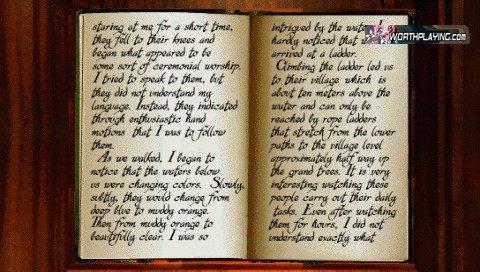 staring at me for a short time,
they fell to their knees and
began what appeared to be
some sort of ceremonial worship.
I tried to speak to them, but
they did not understand my
language. Instead, they indicated
through enthusiastic hand
motions that I was to follow
them.
As we walked, I began to
notice that the waters below
us were changing colors. Slowly,
subtly, they would change from
deep blue to muddy orange.
Then from muddy orange to
beautifully clear. I was so
intrigued by the water
hardly noticed that
arrived at a ladder.
Climbing the ladder led us
to their village which is
about ten meters above the
water and can only be
reached by rope ladders
that stretch from the lower
paths to the village level
approximately half way up
the grand trees. It is very
interesting watching these
people carry out their daily
tasks. Even after watching
them for hours, I did not
understand exactly what
WORTHPLAYING.com